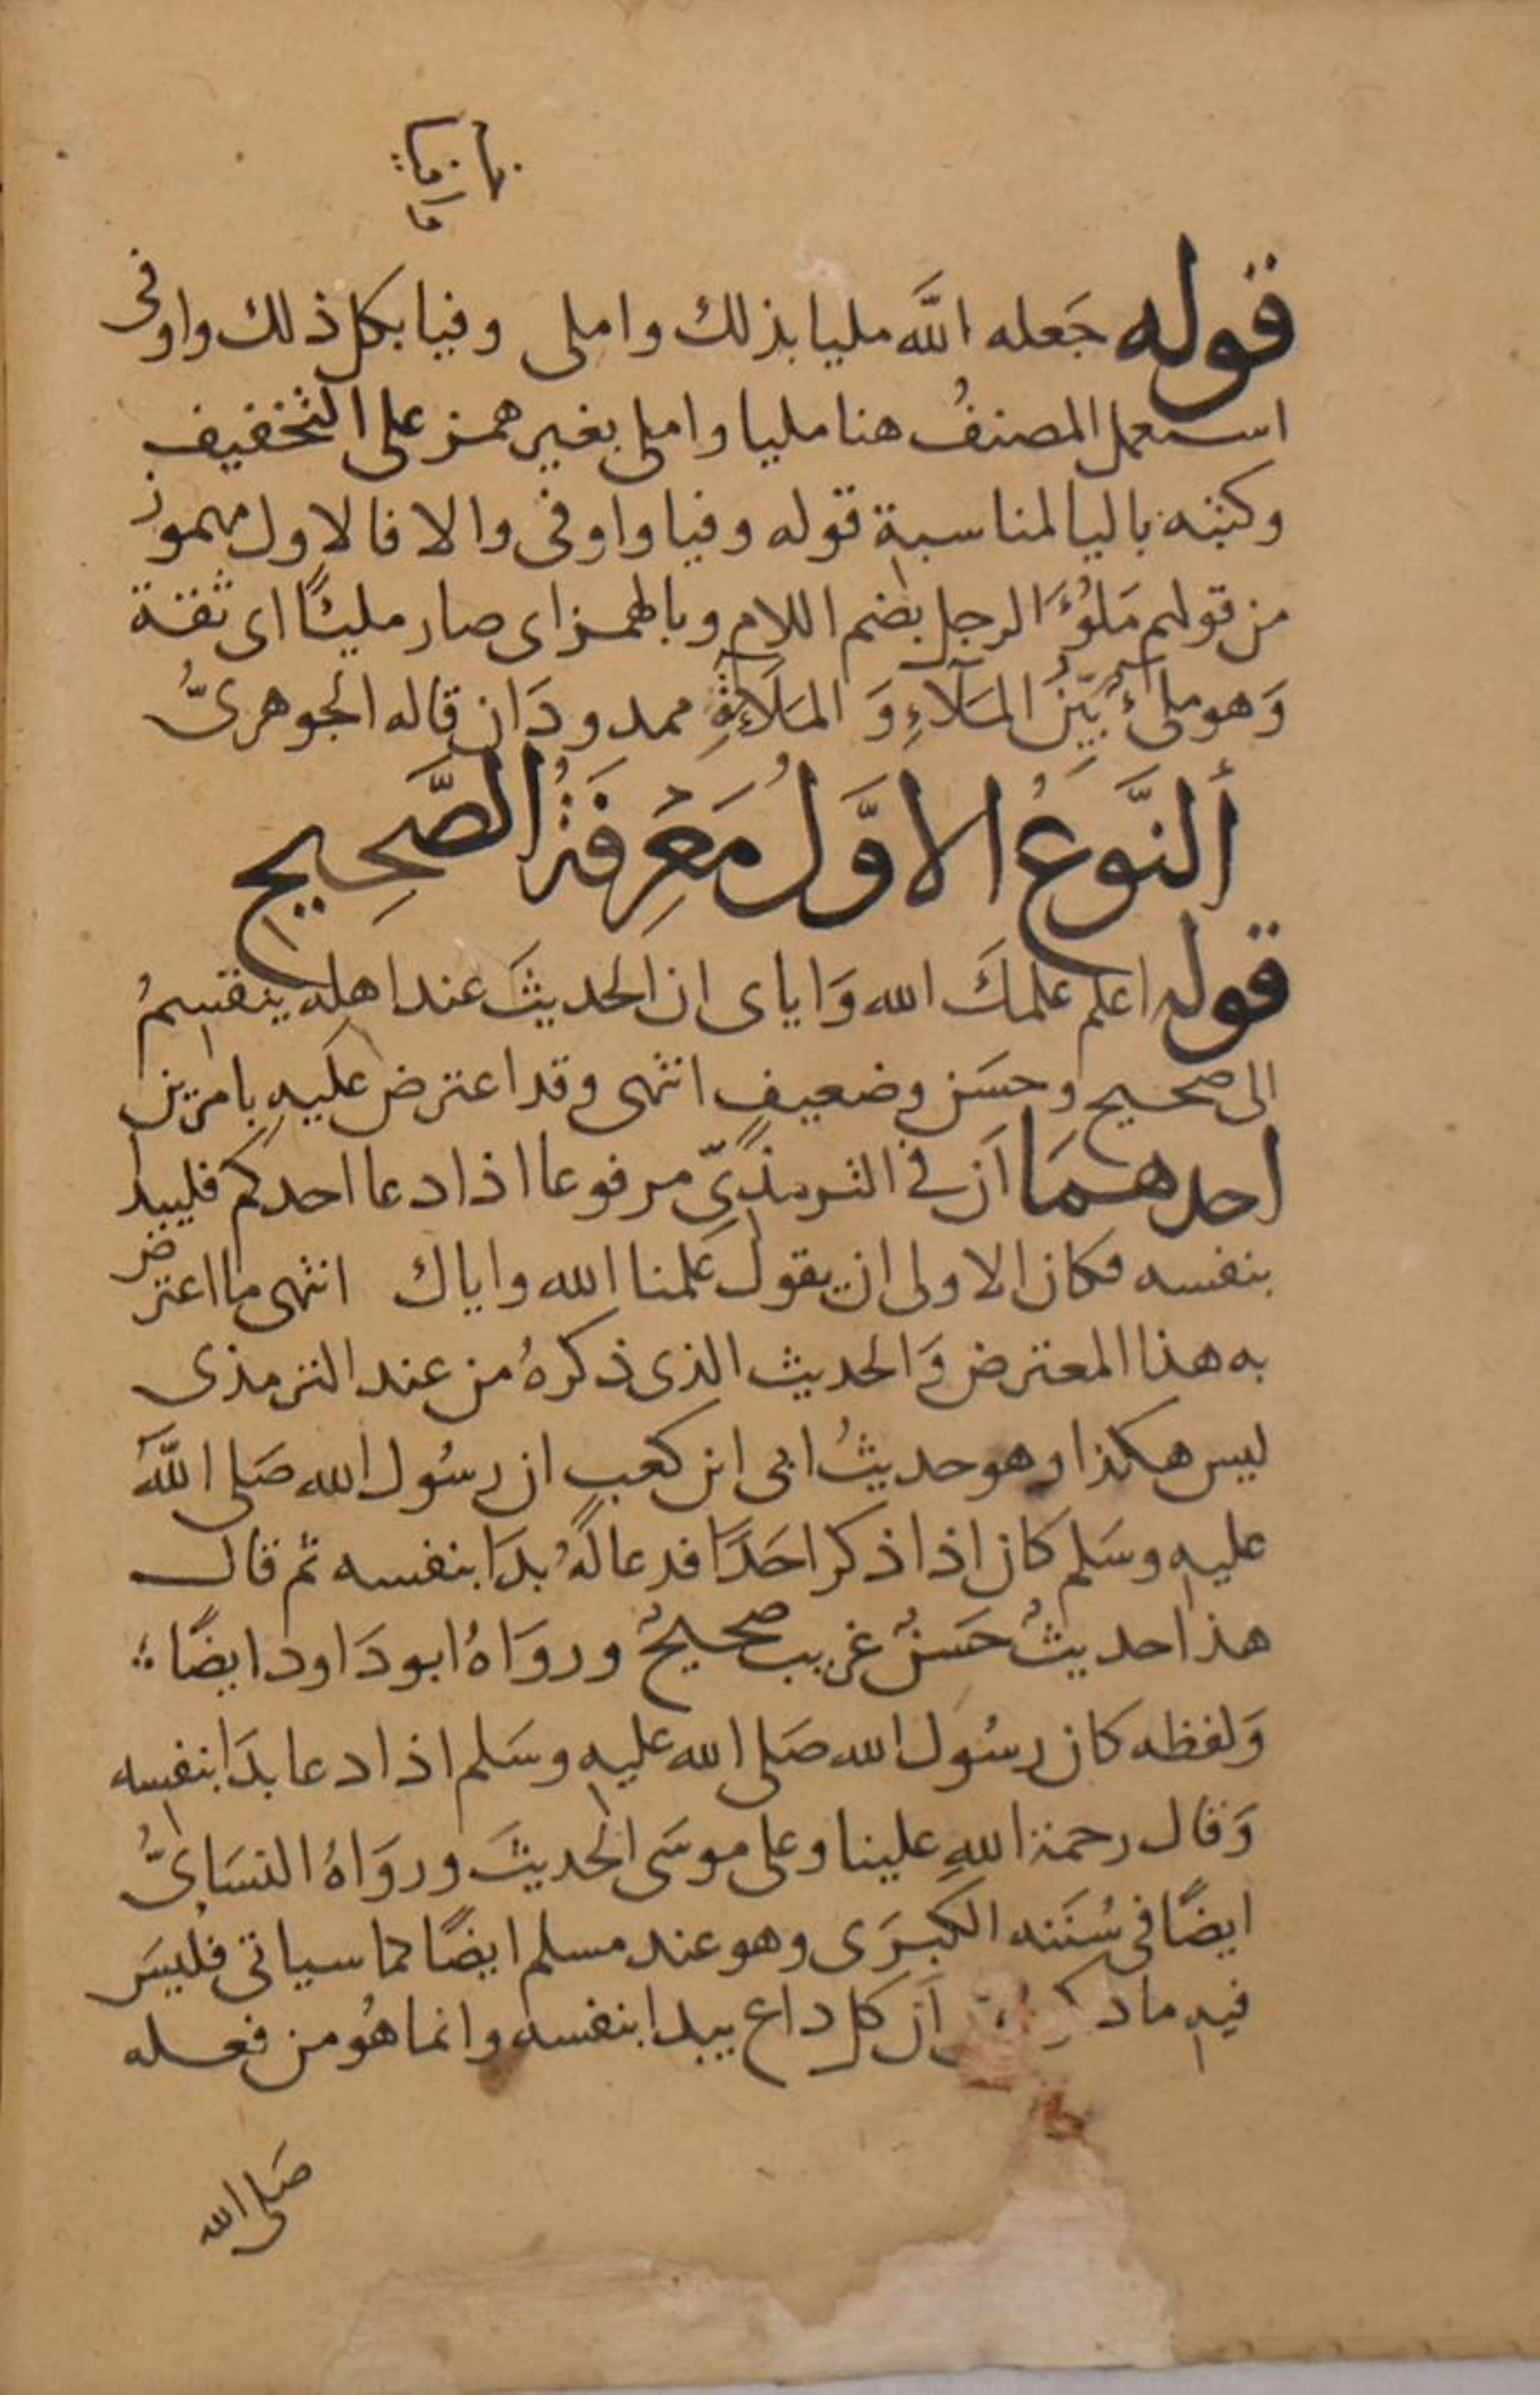 قوله جَعله الله مليا بذلك واملى وفيا بكل ذلك واوفى
استعمل المصنفُ هنا مليا واملى بغير همز على التخفيف
وكتبه باليا لمناسبة قوله وفيا واوفى والا فالاول مهموز
من قولهم مَلُؤَ الرجل بضم اللام وبالهمز اى صار مليئًا اى ثقة
وَهو ملئٌ بَيّنُ المَلَآءِ وَ المَلَاءَةِ ممدودَان قاله الجوهرىُّ
ألنَّوعُ الاوَّلُ مَعْرِفَةُ الصَّحِيحِ
قوله اعلم علمكَ الله وَاياى ان الحديثَ عند اهله ينقسمُ
الى صحيح وحسَن وضعيفٍ انتهى وقد اعترض عَليهِ بامرَين
احدهمَا اَن فى الترمذىِّ مرفوعا اذا دعا احدكم فليبدا
بنفسه فكان الاولى ان يقول عَلمنا الله واياك انتهى ما اعترض
به هذا المعترض وَالحديث الذى ذكرهُ من عند الترمذى
ليس هكذا وهو حديثُ ابى ابن كعبٍ ان رسُول الله صَلى اللهُ
عليهِ وسَلم كان اذا ذكر احَدًا فدعا لهُ بدَا بنفسه ثم قال
هذا حديثٌ حَسَنٌ غريب صحيحٌ وروَاهُ ابو دَاود ايضًا
وَلفظه كان رسُول الله صَلى الله عليهِ وسَلم اذا دعا بدَا بنفسه
وَقال رحمة اللهِ علينا وعلى موسَى الحديثَ وروَاهُ النسَاىُّ
ايضًا فى سُنَنه الكبرَى وهو عند مسلم ايضًا كما سياتى فليسَ
فيهِ ما اَن كل داع يبدا بنفسه وانما هُو من فعله
صَلى الله